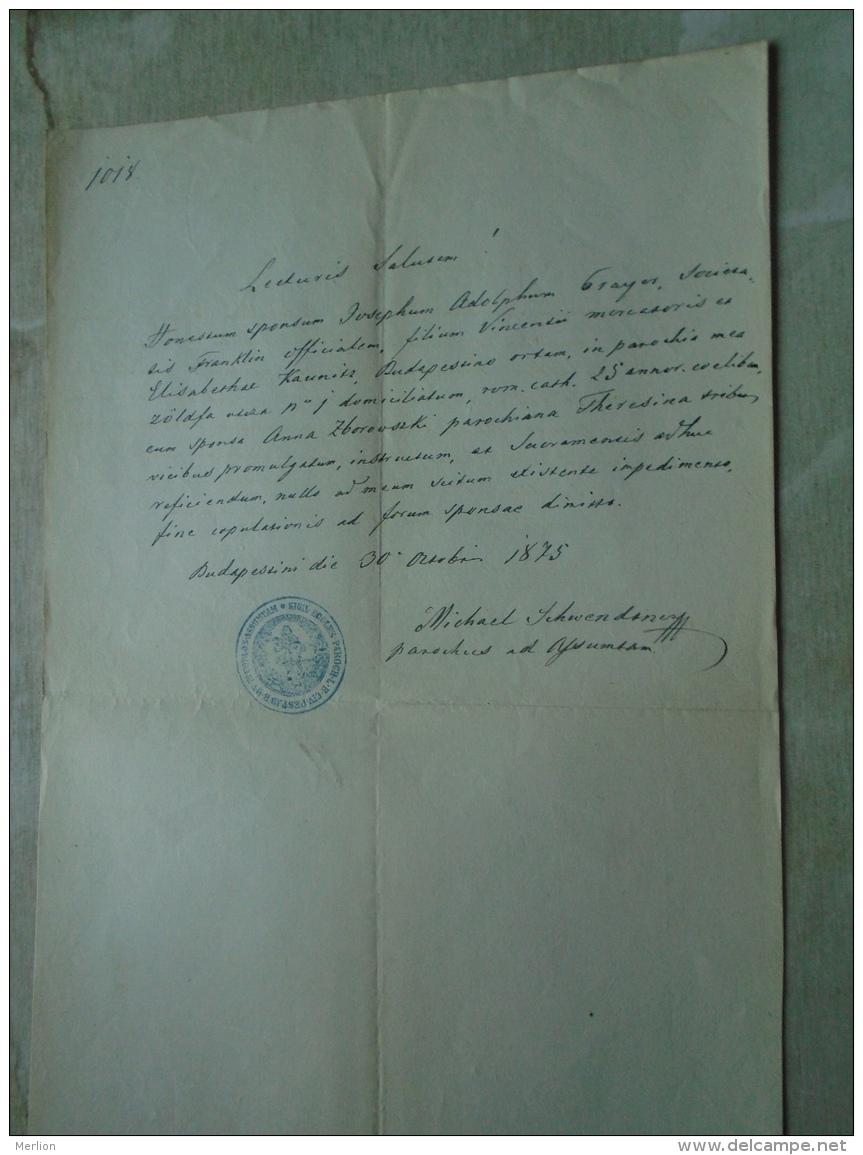 1018
Lecturis Salutem!
Honestum sponsum Josephum Adolphum Grayer, Societa-
tis Franklin officialem, filium Vincentii mercatoris et
Elisabethae Kaunitz, Budapestino ortam, in parochia mea
zöldfa utcza domiciliatum, rom. cath. 25 annor. coelibem,
cum sponsa Anna Zborowszki parochiana Theresina tribus
vicibus promulgatum, instructum, et Sacramentis adhuc
reficiendum, nullo ad meum scitum existente impedimento,
fine copulationis ad forum sponsae dimitto.
Budapestini die 30a Octobr 1875
Michael Schwendtner
parochus ad Assumtam
SIGIL. PAROCH. L. R. CIV. PEST. AD B. M. V. IN COELOS ASSUMTAM
Merlion
www.delcampe.net